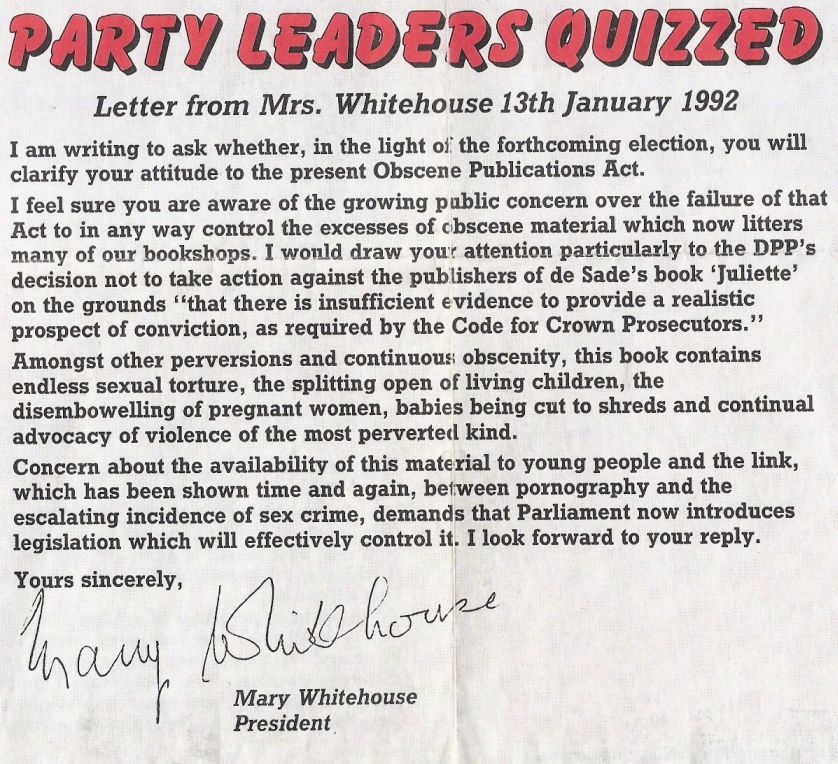 PARTY LEADERS QUIZZED
Letter from Mrs. Whitehouse 13th January 1992
I am writing to ask whether, in the light of the forthcoming election, you will
clarify your attitude to the present Obscene Publications Act.
I feel sure you are aware of the growing public concern over the failure of that
Act to in any way control the excesses of obscene material which now litters
many of our bookshops. I would draw your attention particularly to the DPP's
decision not to take action against the publishers of de Sade's book 'Juliette'
on the grounds "that there is insufficient evidence to provide a realistic
prospect of conviction, as required by the Code for Crown Prosecutors."
Amongst other perversions and continuous obscenity, this book contains
endless sexual torture, the splitting open of living children, the
disembowelling of pregnant women, babies being cut to shreds and continual
advocacy of violence of the most perverted kind.
Concern about the availability of this material to young people and the link,
which has been shown time and again, between pornography and the
escalating incidence of sex crime, demands that Parliament now introduces
legislation which will effectively control it. I look forward to your reply.
Yours sincerely,
Mary Whitehouse
Mary Whitehouse
President